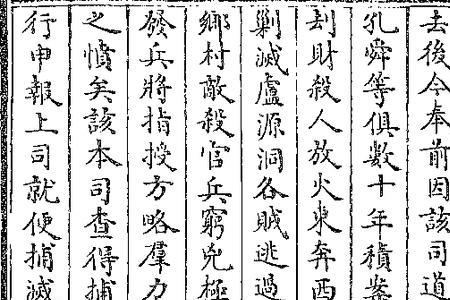 去後今奉前因該司道
孔舜等俱數十年積案
刦財殺人放火東奔西
剿滅盧源洞各賊逃過
鄉村敵殺官兵窮兇極
發兵將指授方略羣力
之憤矣該本司查得捕
行申報上司就便捕滅